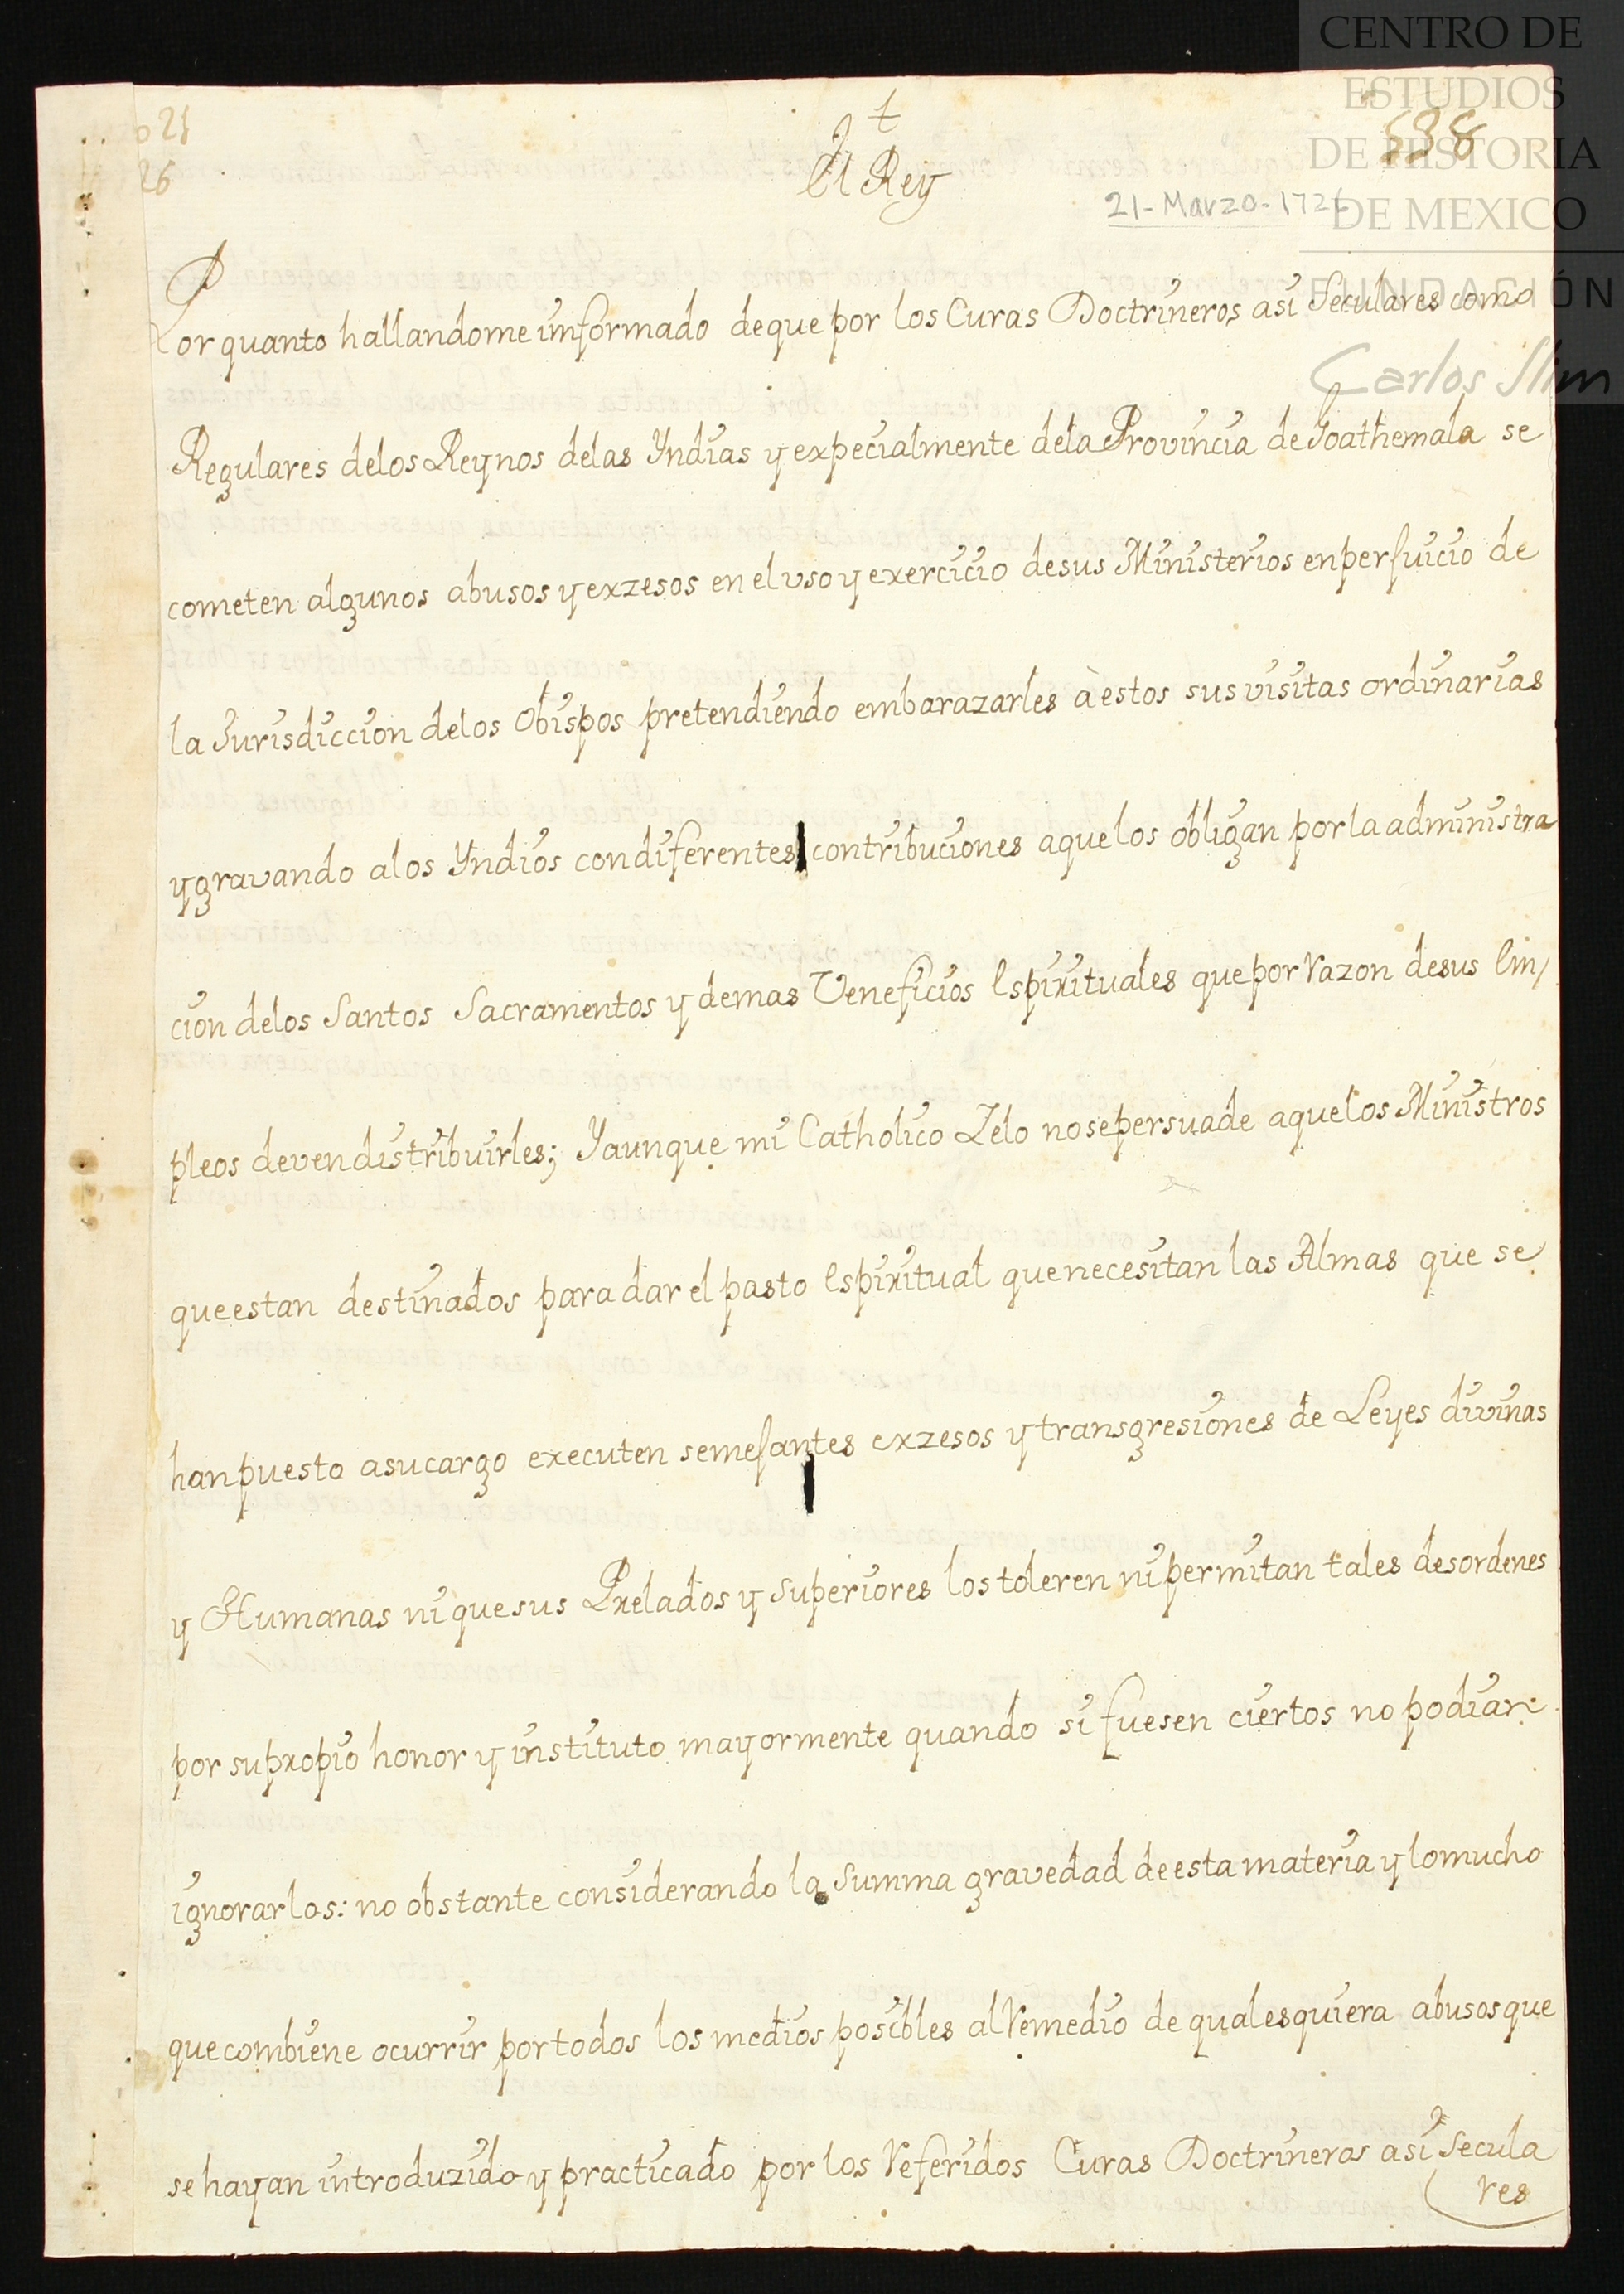 CENTRO DE
ESTUDIOS
DE HISTORIA
DE MEXICO
FUNDACIÓN
Carlos Slim
21
26
t
El Rey
21-Marzo-1726
Por quanto hallandome imformado deque por los Curas Doctrineros asi Seculares como
Regulares delos Reynos delas Yndias y expecialmente dela Provincia de Goathemala se
cometen algunos abusos y exzesos en el vso y exercicio desus Ministerios en perjuicio de
la Jurisdiccion delos Obispos pretendiendo embarazarles à estos sus visitas ordinarias
y gravando alos Yndios con diferentes contribuciones aque los obligan por la administra
cion delos Santos Sacramentos y demas Veneficios Espirituales que por razon desus Em/
pleos deven distribuirles; Yaunque mi Catholico Zelo no se persuade aquelos Ministros
que estan destinados para dar el pasto Espiritual que necesitan las Almas que se
han puesto asu cargo executen semejantes exzesos y transgresiones de Leyes divinas
y Humanas ni que sus Prelados y Superiores los toleren ni permitan tales desordenes
por su propio honor y instituto mayormente quando si fuesen ciertos no podian
ignorarlos: no obstante considerando la Summa gravedad de esta materia y lo mucho
que combiene ocurrir por todos los medios posibles al remedio de qualesquiera abusos que
se hayan introduzido y practicado por los referidos Curas Doctrineros asi Secula
res